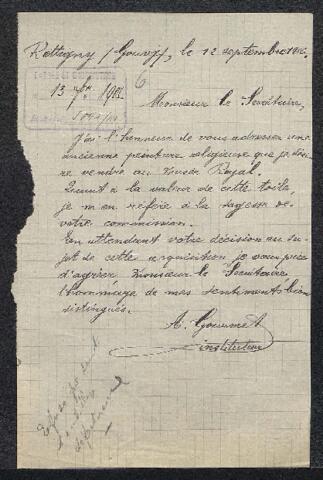 Rettigny (Gouvy), le 12 septembre 1912.
13 7bre 1912
6
Monsieur le Secrétaire,
J'ai l'honneur de vous adresser une
ancienne peinture religieuse que je désire
vendre au Musée Royal.
Quant à la valeur de cette toile,
je m'en réfère à la sagesse de
votre commission.
En attendant votre décision au su-
jet de cette acquisition je vous prie
d'agréer Monsieur le Secrétaire
l'hommage de mes sentiments bien
distingués.
A. Gourmet
instituteur